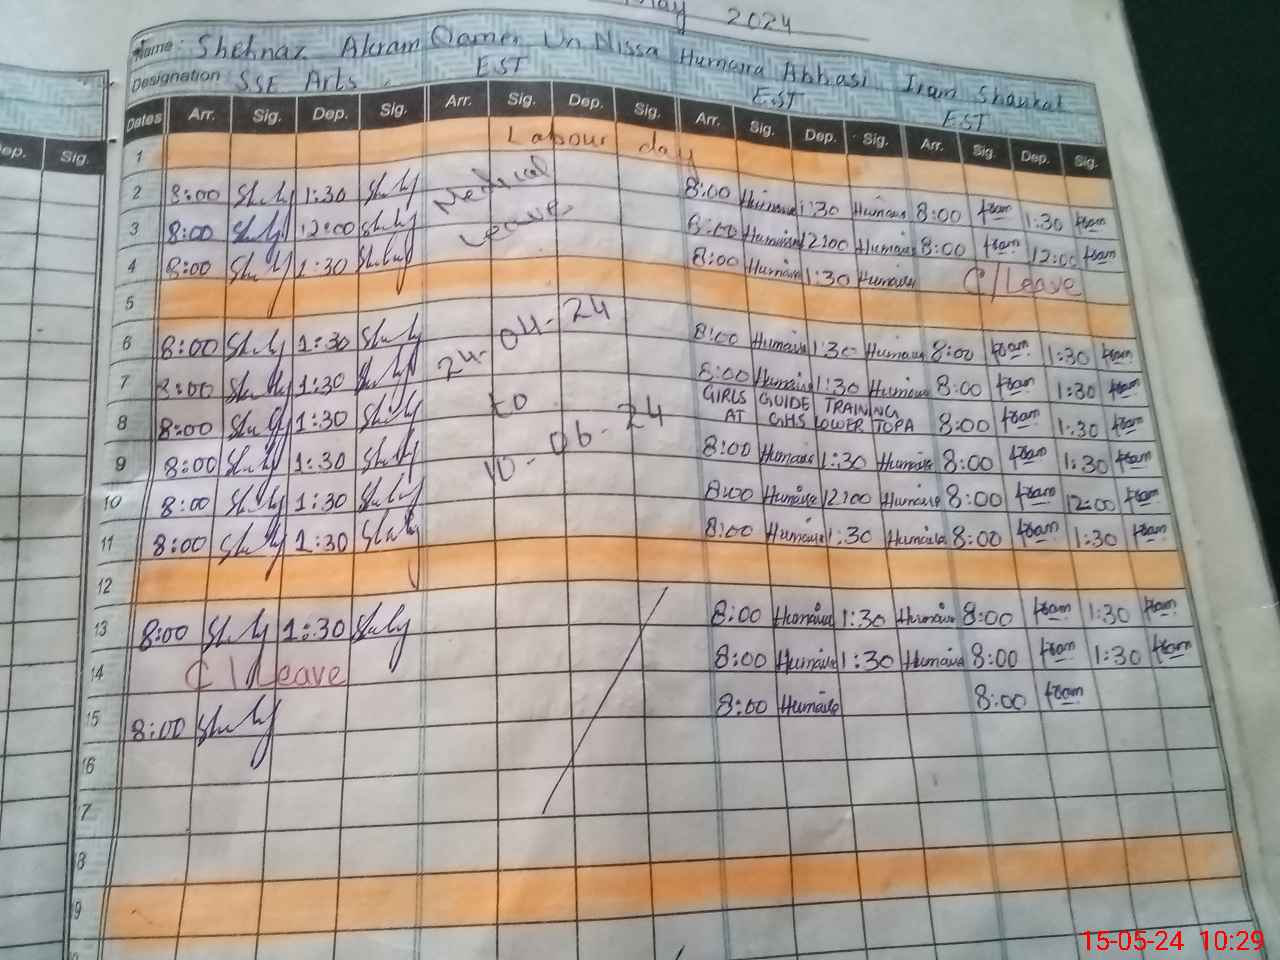 May 2024
Name: Shehnaz Akram Qamer Un Nissa Humaira Abbasi Iram Shaukat
Designation SSE Arts EST EST EST
Dates Arr. Sig. Dep. Sig. Arr. Sig. Dep. Sig. Arr. Sig. Dep. Sig. Arr. Sig. Dep. Sig.
ep. Sig.
1 Labour day
2 8:00 1:30 Medical 8:00 Humaira 1:30 Humaira 8:00 Iram 1:30 Iram
3 8:00 12:00 Leave 8:00 Humaira 12:00 Humaira 8:00 Iram 12:00 Iram
4 8:00 1:30 8:00 Humaira 1:30 Humaira C/Leave
5
6 8:00 1:30 24-04-24 8:00 Humaira 1:30 Humaira 8:00 Iram 1:30 Iram
7 8:00 1:30 8:00 Humaira 1:30 Humaira 8:00 Iram 1:30 Iram
8 8:00 1:30 to GIRLS GUIDE TRAINING AT GHS LOWER TOPA 8:00 Iram 1:30 Iram
9 8:00 1:30 10-06-24 8:00 Humaira 1:30 Humaira 8:00 Iram 1:30 Iram
10 8:00 1:30 8:00 Humaira 12:00 Humaira 8:00 Iram 12:00 Iram
11 8:00 1:30 8:00 Humaira 1:30 Humaira 8:00 Iram 1:30 Iram
12
13 8:00 1:30 8:00 Humaira 1:30 Humaira 8:00 Iram 1:30 Iram
14 C/Leave 8:00 Humaira 1:30 Humaira 8:00 Iram 1:30 Iram
15 8:00 8:00 Humaira 8:00 Iram
16
7
8
9
15-05-24 10:29